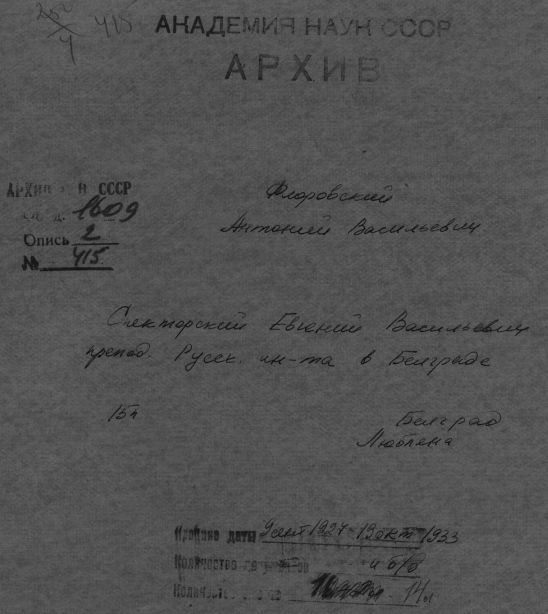 415 АКАДЕМИЯ НАУК СССР
АРХИВ
АРХИВ СССР
1609
Опись 2
№ 415
Флоровский
Антоний Васильевич
Спекторский Евгений Васильевич
препод. Русск. ин-та в Белграде
15п
Белград
Любляна
Крайние даты 9 сент 1927 - 19 окт 1933
Количество и б/д
Количество 14л